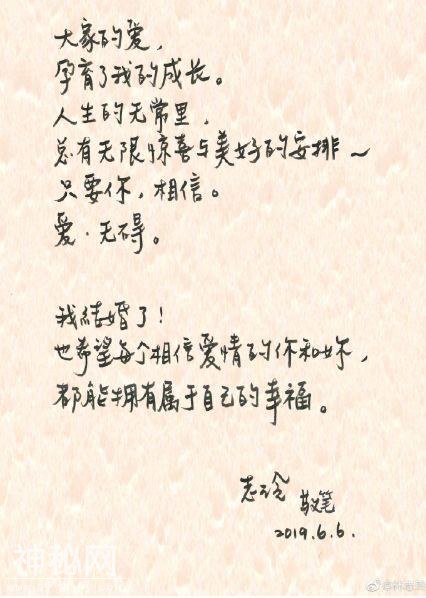 大家的爱，
孕育了我的成长。
人生的无常里，
总有无限惊喜与美好的安排～
只要你，相信。
爱·无碍。
我结婚了！
也希望每个相信爱情的你和妳，
都能拥有属于自己的幸福。
志玲 敬笔
2019.6.6.
神秘网